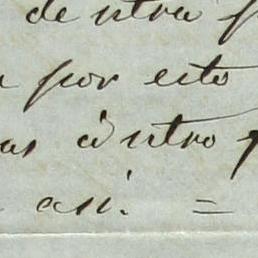 de otra p
por esto
as ó otro p
asi. =